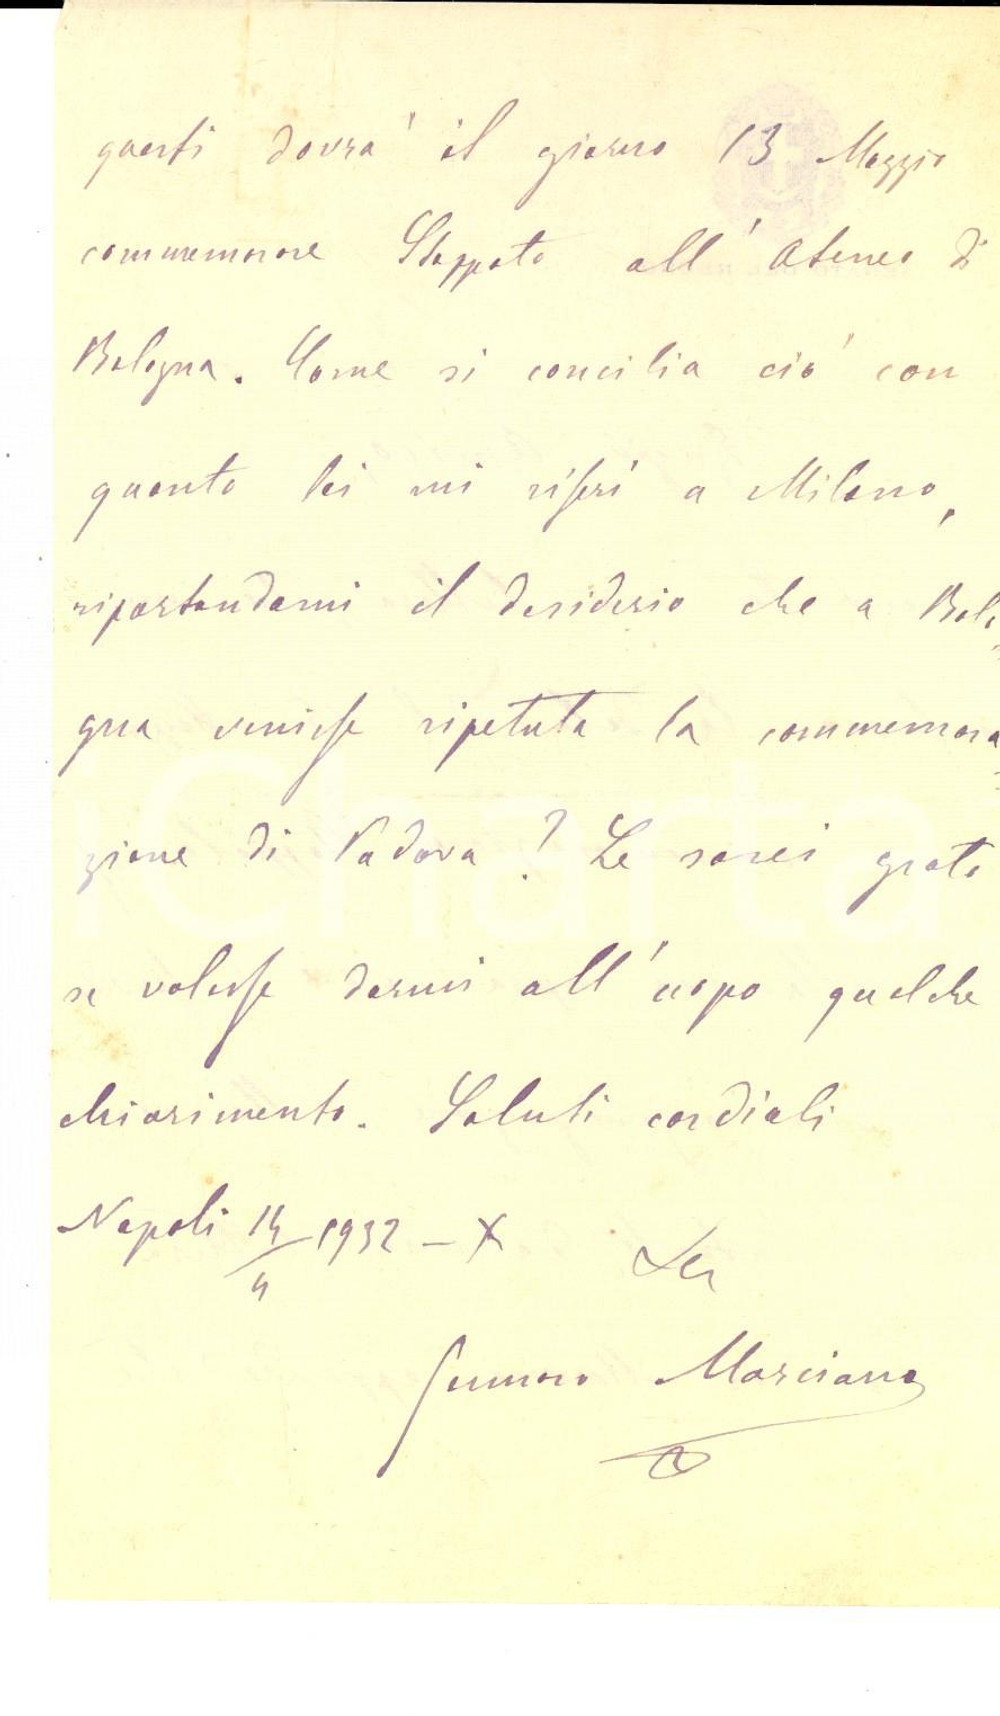 questi dovrà il giorno 13 Maggio
commemorare Stoppato all'Ateneo di
Bologna. Come si concilia ciò con
quanto lei mi riferì a Milano,
riportandomi il desiderio che a Bolo-
gna venisse ripetuta la commemora-
zione di Padova? Le sarei grato
se volesse darmi all'uopo qualche
chiarimento. Saluti cordiali
Napoli 14/4 1932 - X
Gennaro Marciano
iCharta